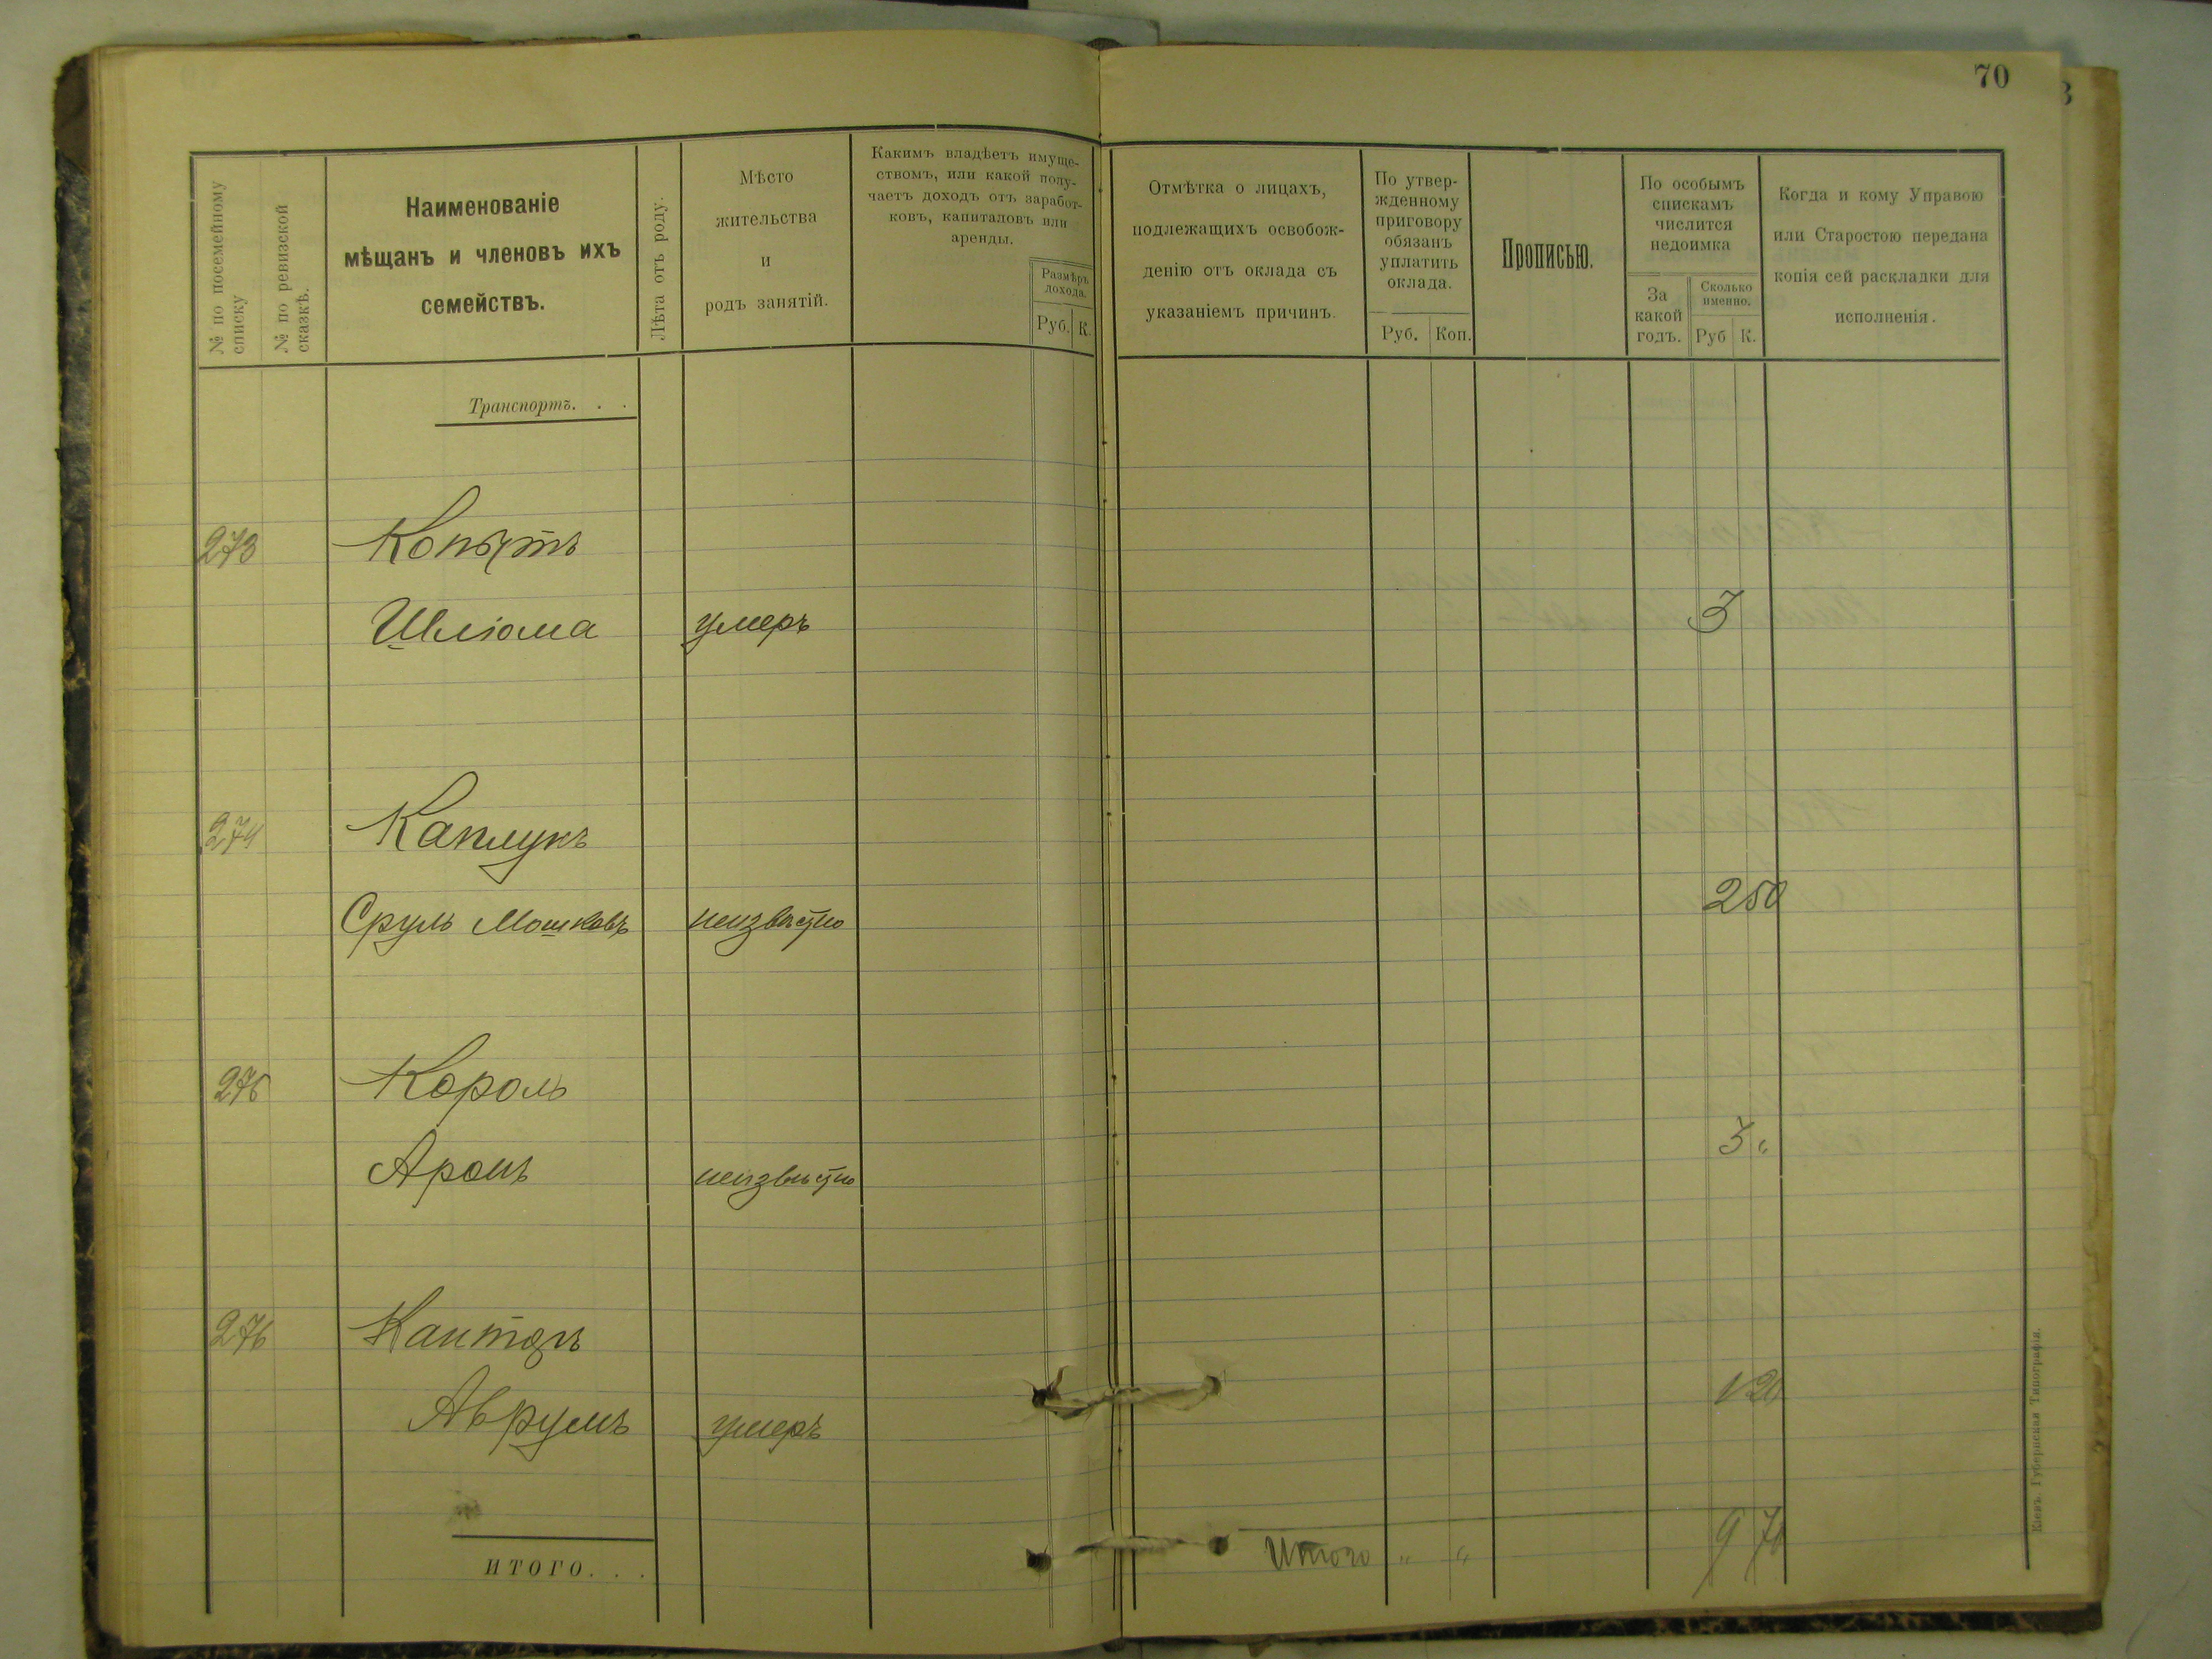 70
№ по посемейному списку
№ по ревизской сказкѣ.
Наименованіе
мѣщанъ и членовъ ихъ
семействъ.
Лѣта отъ роду.
Мѣсто
жительства
и
родъ занятій.
Какимъ владѣетъ имуще-
ствомъ, или какой полу-
чаетъ доходъ отъ заработ-
ковъ, капиталовъ или
аренды.
Размѣръ
дохода.
Руб. К.
Отмѣтка о лицахъ,
подлежащихъ освобож-
денію отъ оклада съ
указаніемъ причинъ.
По утвер-
жденному
приговору
обязанъ
уплатить
оклада.
Руб. Коп.
Прописью.
По особымъ
спискамъ
числится
недоимка
За
какой
годъ.
Сколько
именно.
Руб К.
Когда и кому Управою
или Старостою передана
копія сей раскладки для
исполненія.
Транспортъ. . .
273 Копытъ
Шліома умеръ 3
274 Каплунъ
Сруль Мошковъ неизвѣстно 2 50
275 Король
Аронъ неизвѣстно 3 "
276 Канторъ
Аврумъ умеръ 1 20
ИТОГО. . .
Итого " " 9 70
Кіевъ. Губернская Типографія.